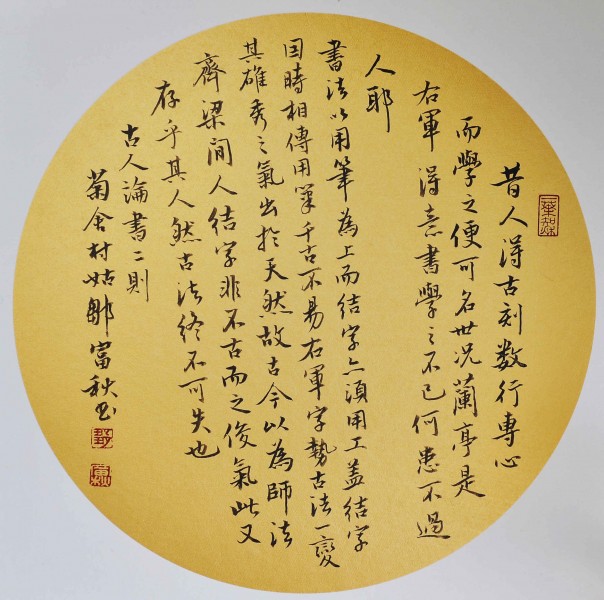 昔人得古刻数行專心
而學之便可名世况蘭亭是
右軍得意書學之不已何患不過
人耶
書法以用筆為上而結字亦須用工盖結字
因時相傳用筆千古不易右軍字勢古法一變
其雄秀之氣出於天然故古今以為師法
齊梁间人結字非不古而乏俊氣此又
存乎其人然古法終不可失也
古人論書二則
菊舍村姑鄒富秋书